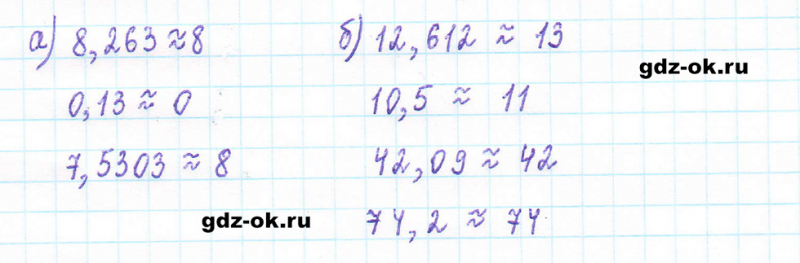 а) 8,263 ≈ 8
0,13 ≈ 0
7,5303 ≈ 8
б) 12,612 ≈ 13
10,5 ≈ 11
42,09 ≈ 42
74,2 ≈ 74
gdz-ok.ru
gdz-ok.ru